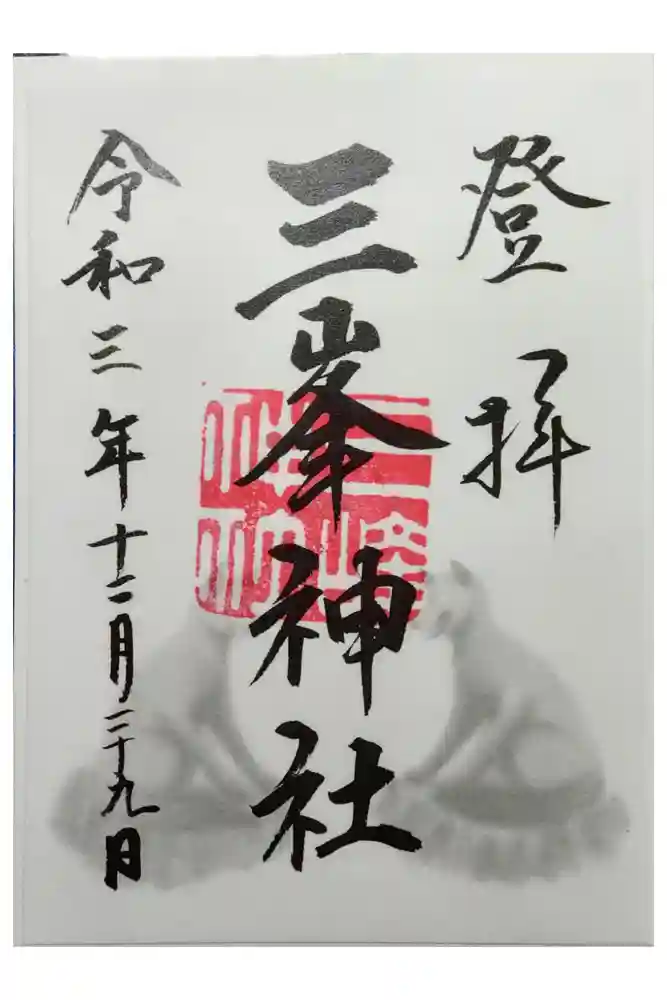 登拝
三峯神社
令和三年十二月二十九日